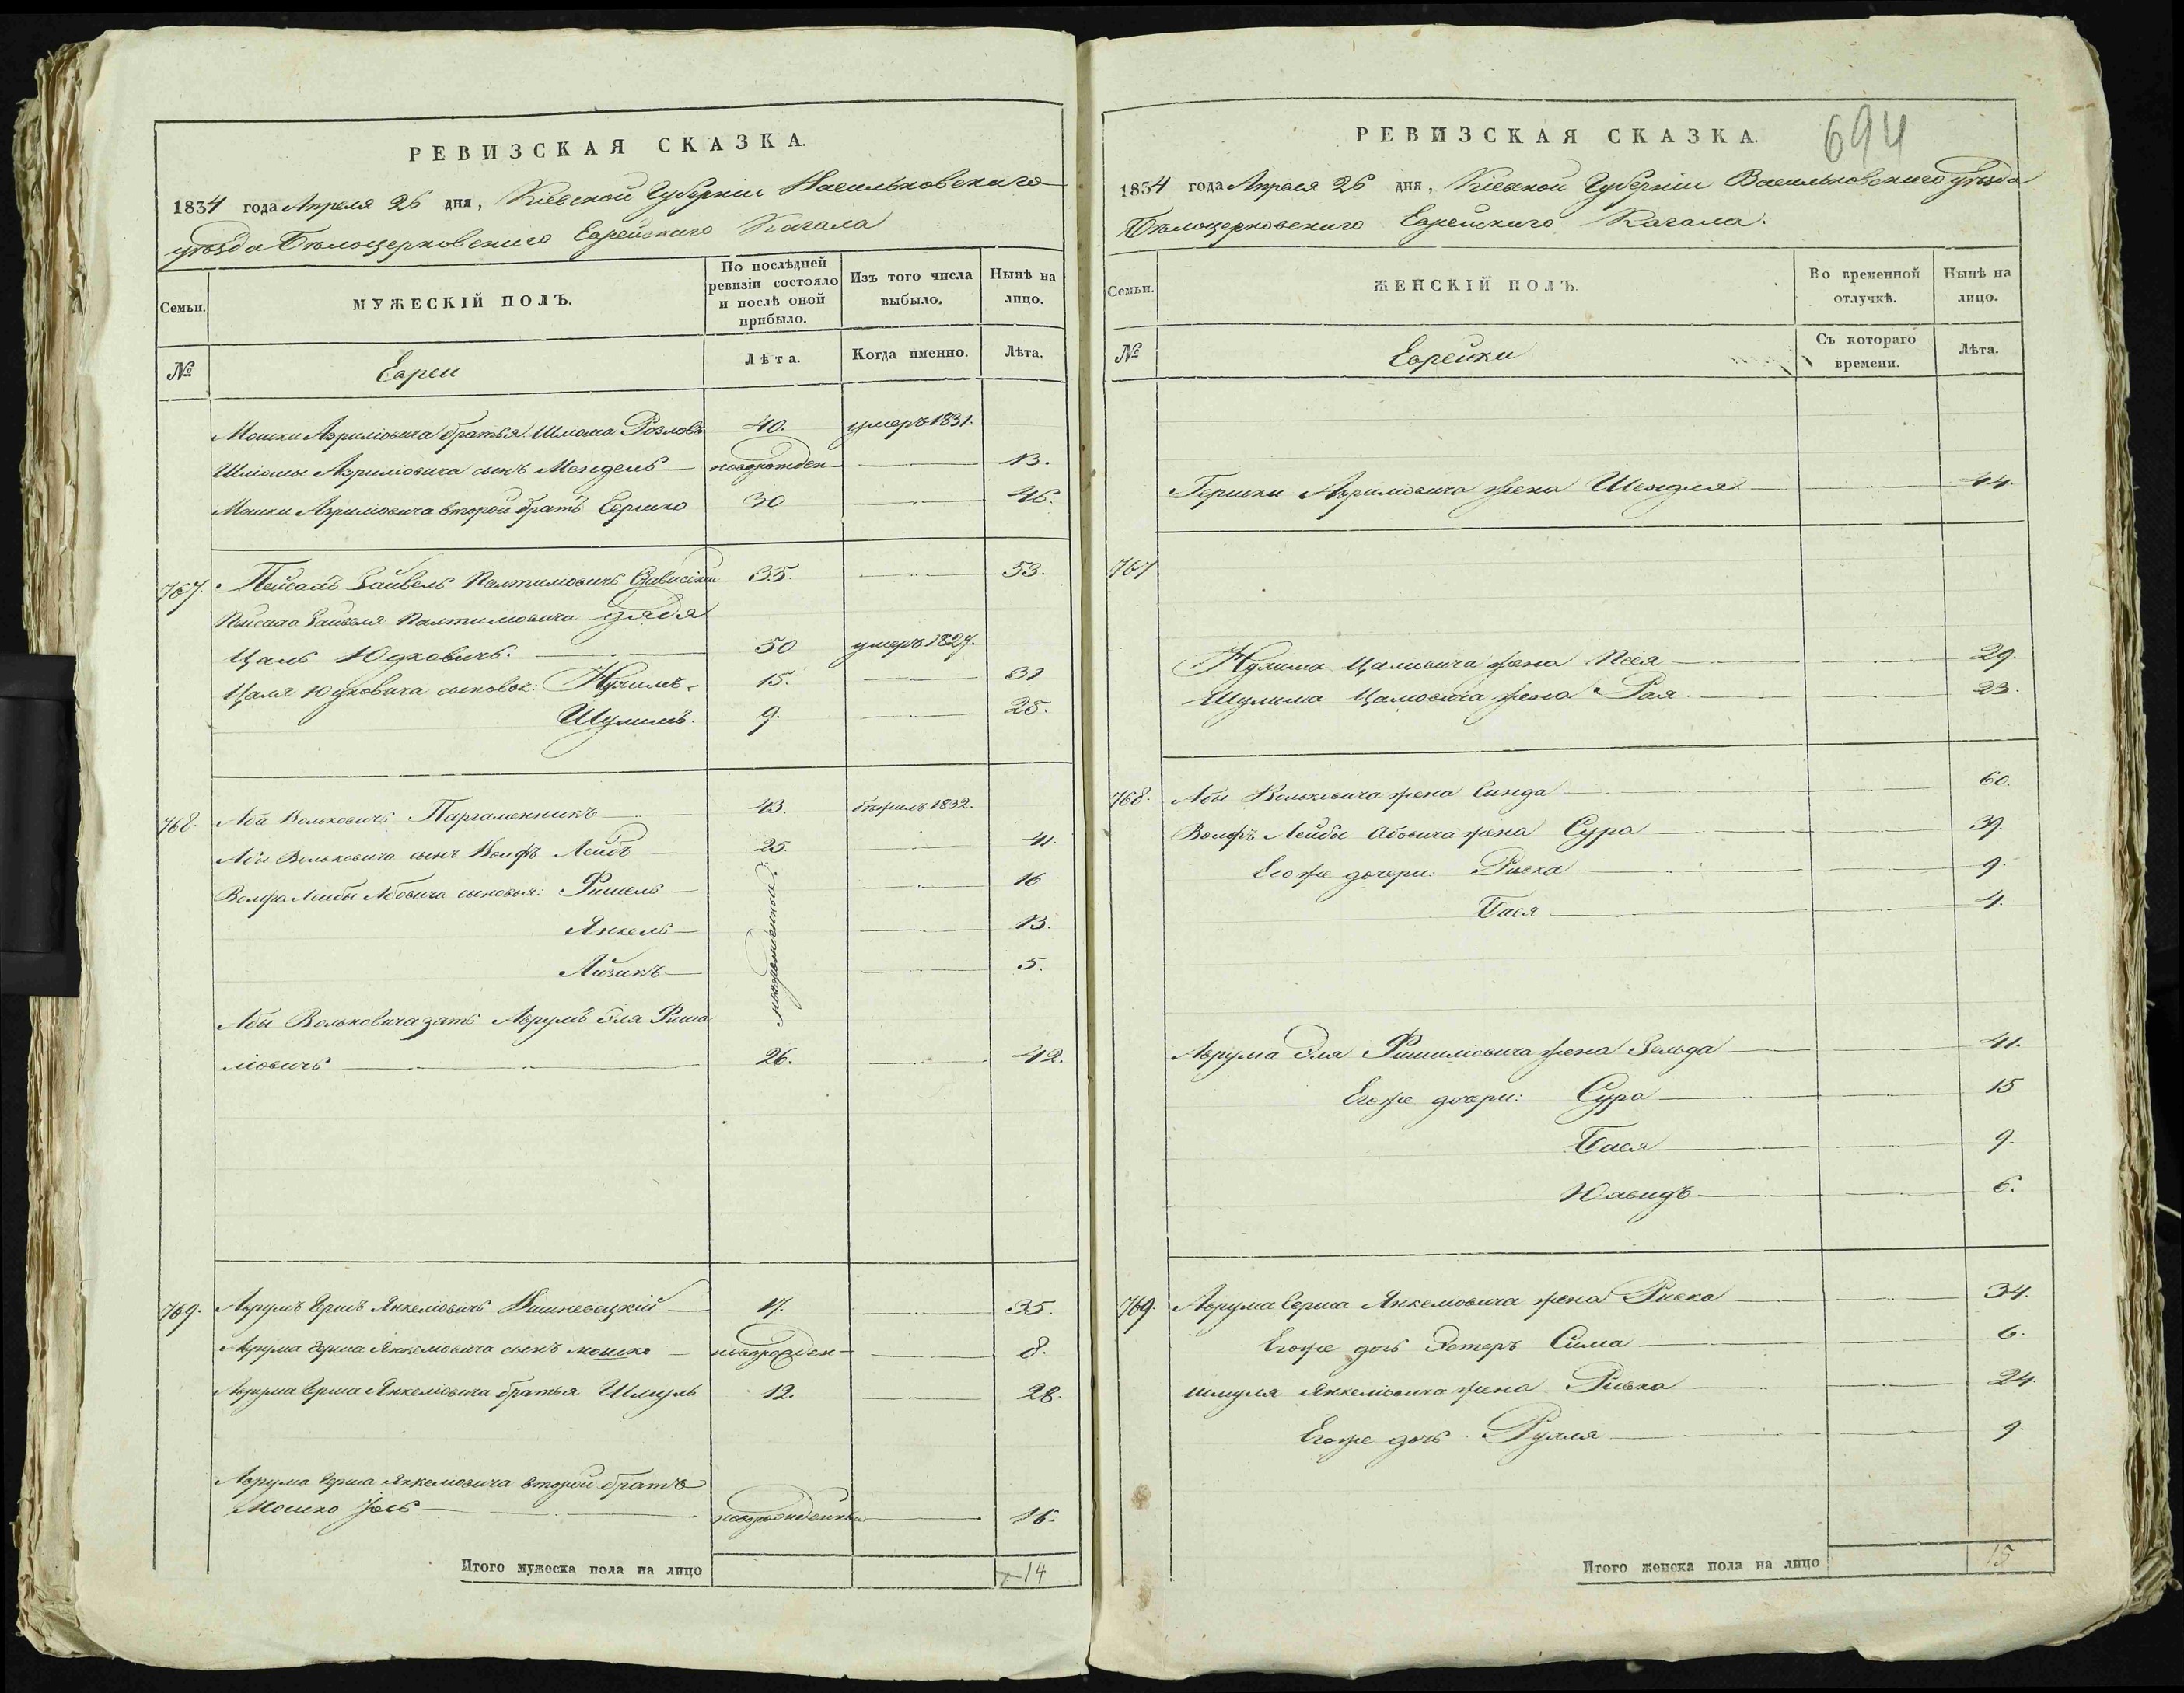 РЕВИЗСКАЯ СКАЗКА.
1834 года Апреля 26 дня, Кіевской Губерніи Васильковскаго
уѣзда Бѣлоцерковскаго Еврейскаго Кагала
Семьи.
МУЖЕСКІЙ ПОЛЪ.
По послѣдней ревизіи состояло и послѣ оной прибыло.
Изъ того числа выбыло.
Нынѣ на лицо.
№
Евреи
Лѣта.
Когда именно.
Лѣта.
Мошки Азриліовича братья: Шлома 40. умеръ 1831.
Шліомы Азриліовича сынъ Мендель новорожден 13.
Мошки Азриліовича второй братъ Гершко 30 46.
767. Пейсахъ Зайвель 35. 53.
Пейсаха Зайвеля дядя
Цаль Юдковичъ. 50 умеръ 1827.
Цаля Юдковича сыновья: 15. 31
Шулимъ. 9. 25.
768. Аба Вольковичъ Паргаменникъ 43. бежалъ 1832.
Абы Вольковича сынъ Волфъ Лейбъ 25. 41.
Волфа Лейбы Абовича сыновья: Фишель 16
Янкель 13.
Айзикъ 5.
новорожденныя
Абы Вольковича зять Аврумъ Эля Фише
ліовичъ 26. 42.
769. Аврумъ Гершъ Янкеліовичъ Вишневецкій 17. 35.
Аврума Герша Янкеліовича сынъ Мошко новорожден 8.
Аврума Герша Янкеліовича братья Шмуль 12. 28.
Аврума Герша Янкеліовича второй братъ
Мошко Іось новорожденны 16.
Итого мужеска пола на лицо 14
РЕВИЗСКАЯ СКАЗКА.
694
1834 года Апреля 26 дня, Кіевской Губерніи Васильковскаго уѣзда
Бѣлоцерковскаго Еврейскаго Кагала.
Семьи.
ЖЕНСКІЙ ПОЛЪ.
Во временной отлучкѣ.
Нынѣ на лицо.
№
Еврейки
Съ котораго времени.
Лѣта.
Гершки Азриліовича жена Шендля 44.
767
Цаліовича жена 29.
Шулима Цаліовича жена 23.
768. Абы Вольковича жена Синда 60.
Волфъ Лейбы Абовича жена Сура 39.
Его же дочери: Ривка 9.
Бася 4.
Аврума Эля Фишиліовича жена Зельда 41.
Его же дочери: Сура 15
Бася 9.
6.
769. Аврума Герша Янкеліовича жена Ривка 34.
Его же дочь Эстеръ Сима 6.
Шмуля Янкеліовича жена Ривка 24.
Его же дочь 9.
Итого женска пола на лицо 15